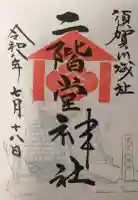 須賀川城址
二階堂神社
令和八年七月十八日